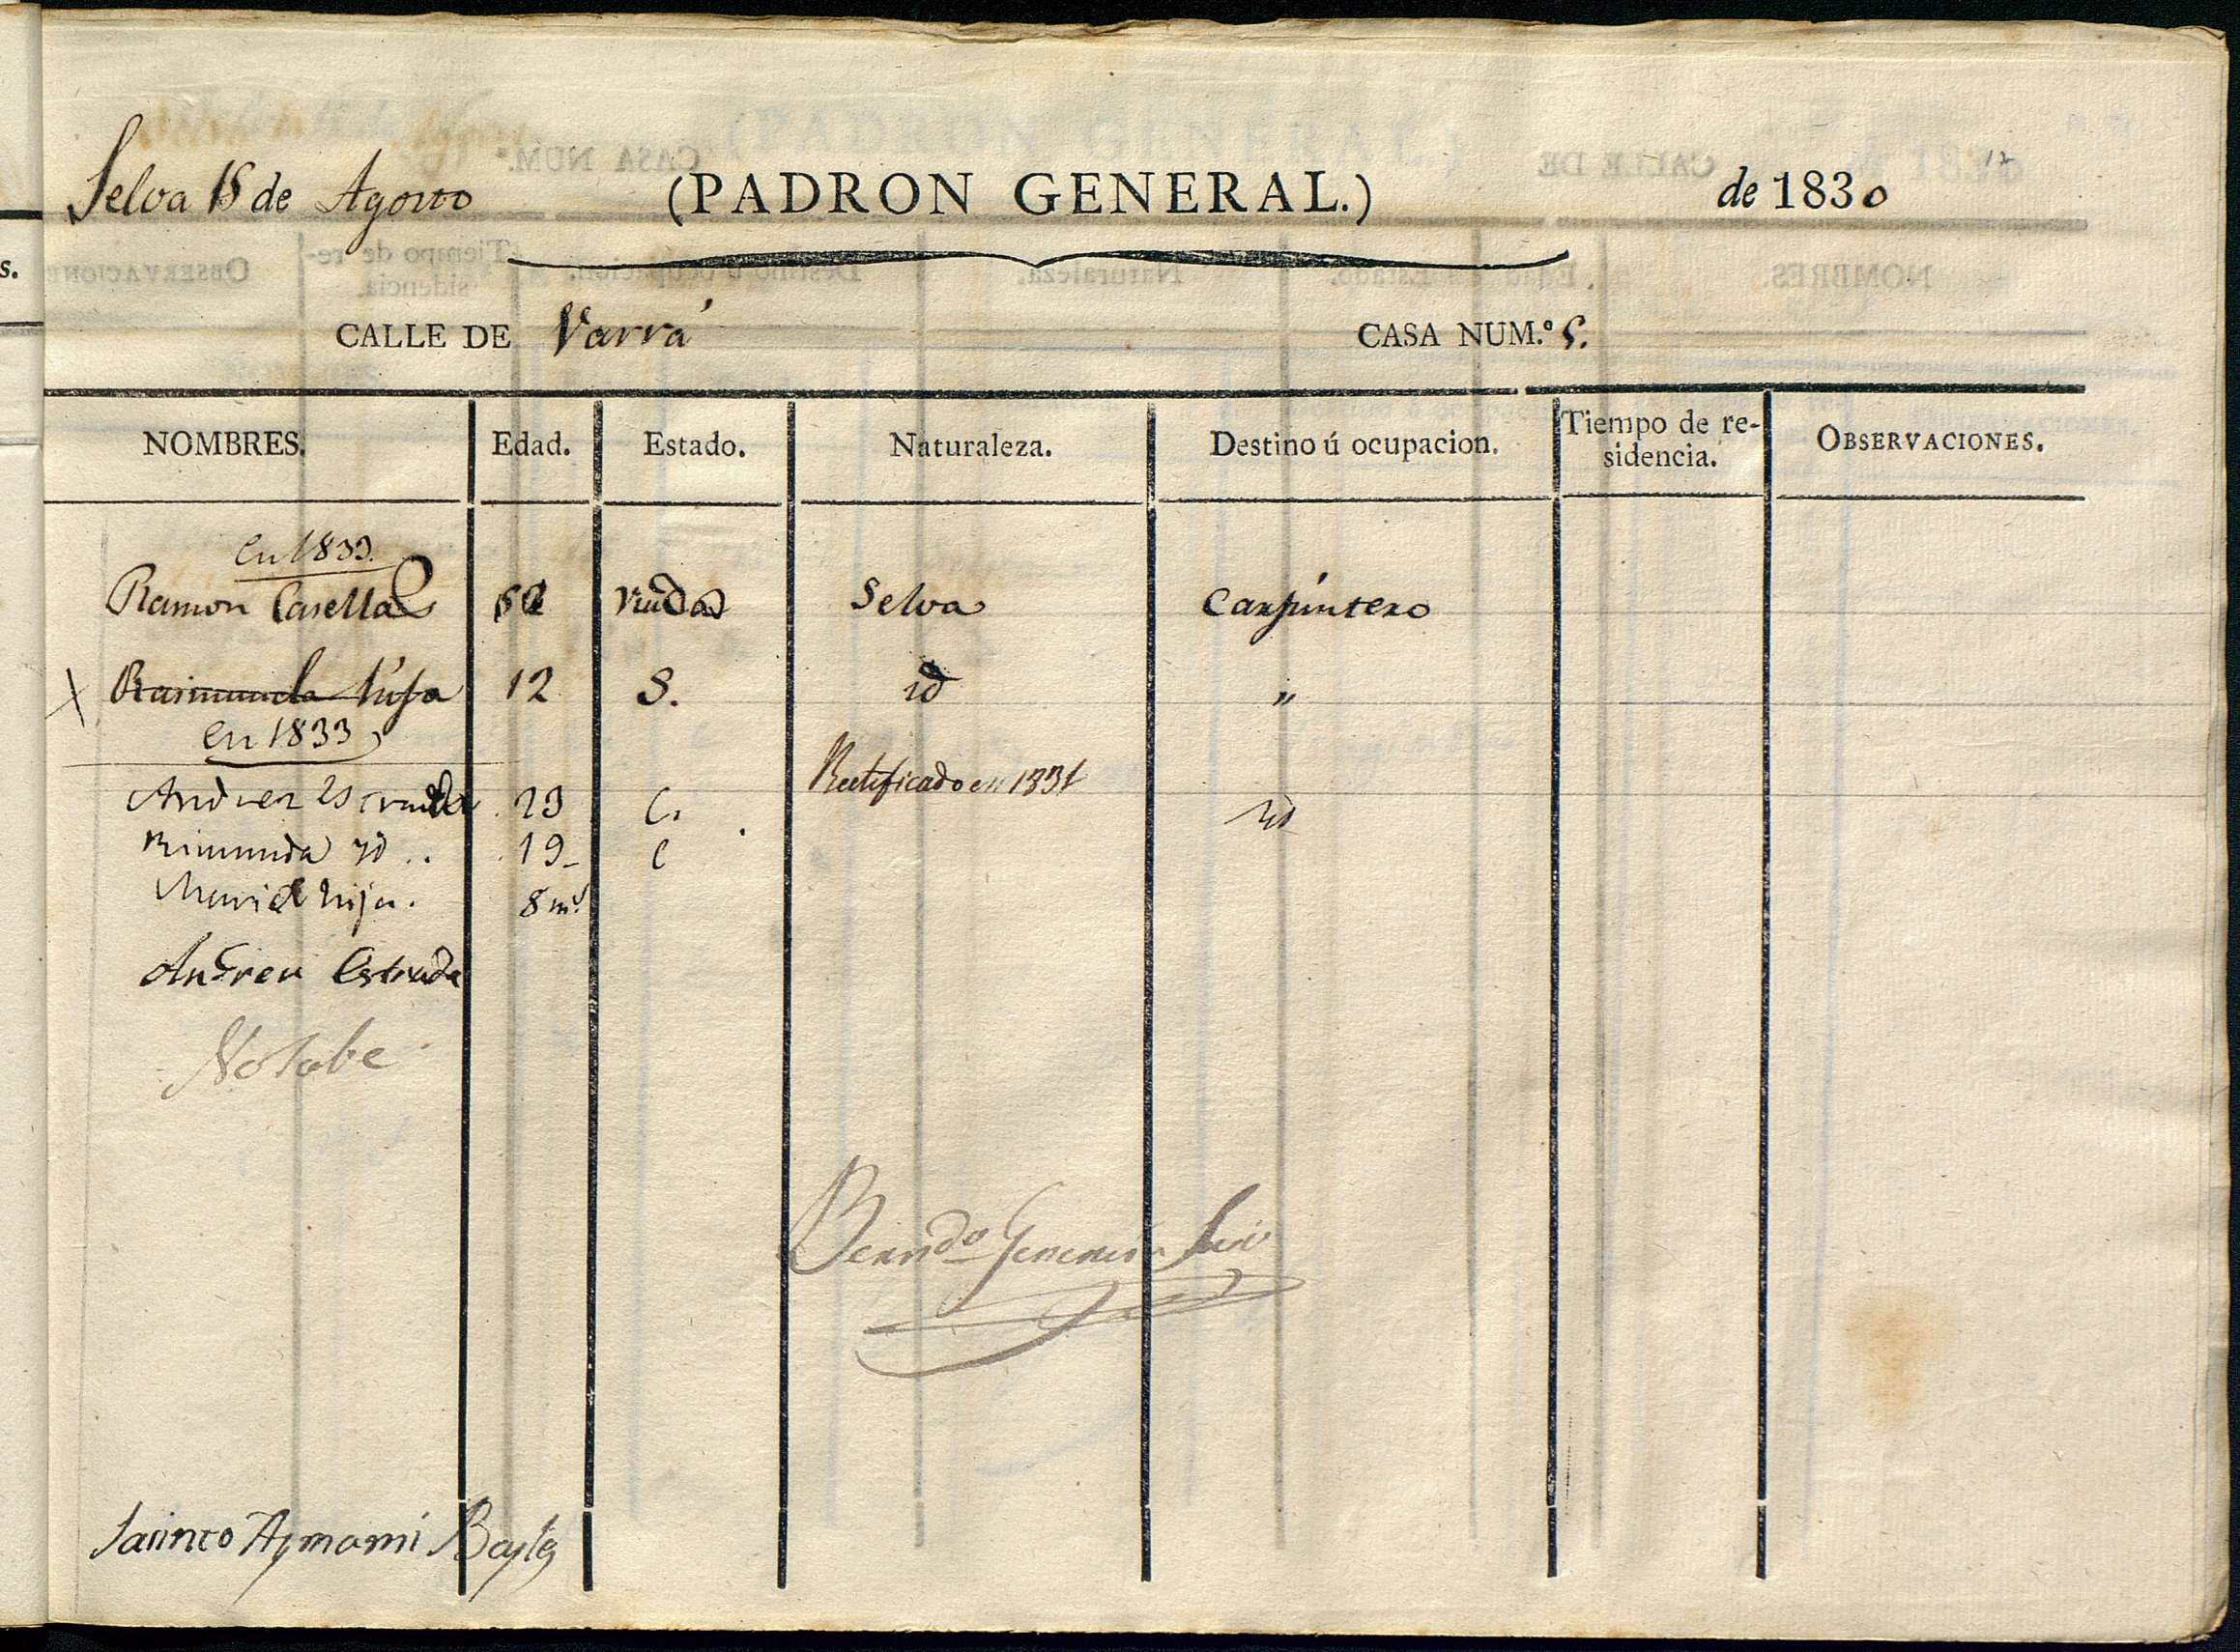 Selva 15 de Agosto (PADRON GENERAL.) de 1830
CALLE DE Varrá CASA NUM.º 5.
NOMBRES. Edad. Estado. Naturaleza. Destino ú ocupacion. Tiempo de re-sidencia. OBSERVACIONES.
En 1833.
Ramon Casellas Viudo Selva Carpintero
Raimunda hija 12 S. id „
En 1833
Rectificado en 1831
Andreu 23 C. id
Rimunda id .. 19 C
Maria hija. 8 m.s
Andreu Estrada
No sabe
Jacinto Aymami Bayle